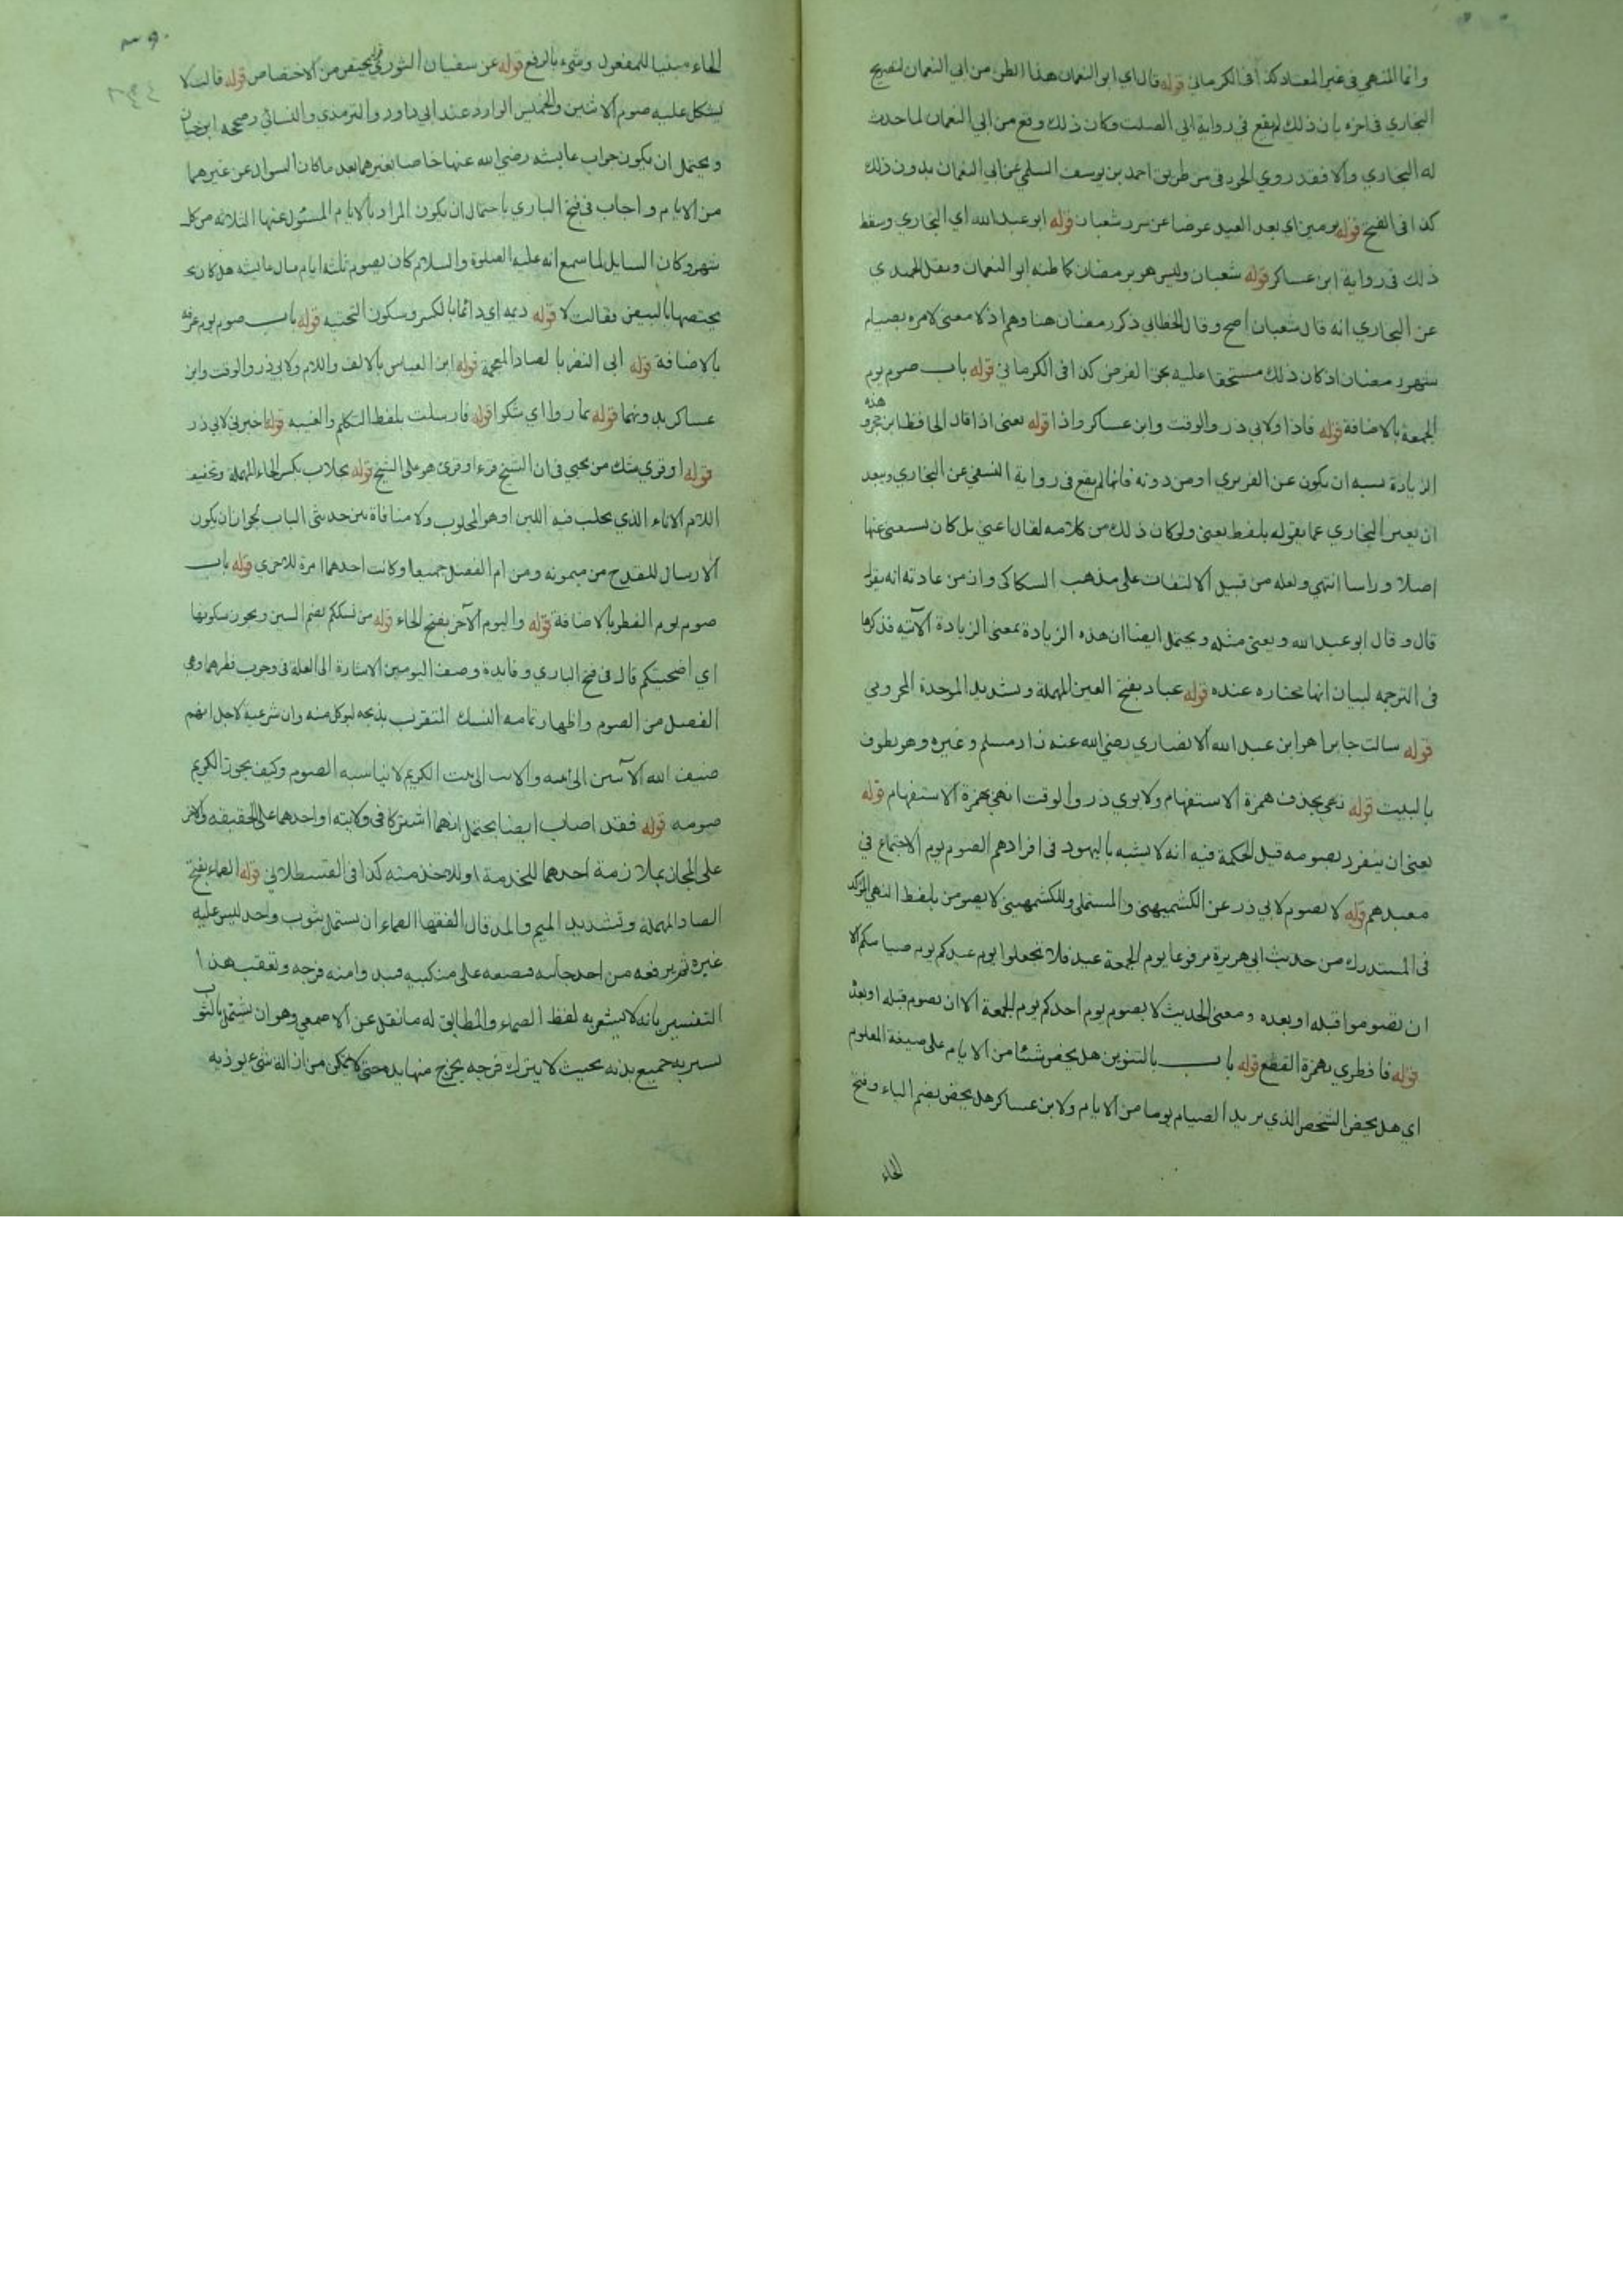 وانما المنهي في غير المعتاد كذا في الكرماني قوله قال اي ابو النعمان هذا الظن من ابي النعمان لتصريح
البخاري في اخره بان ذلك لم يقع في رواية ابي الصلت وكان ذلك وقع من ابي النعمان لما حدث
له البخاري والا فقد روي الجوزقي من طريق احمد بن يوسف السلمي عن ابي النعمان بدون ذلك
كذا في الفتح قوله يومين اي بعد العيد عوضا عن سرر شعبان قوله ابو عبد الله اي البخاري وسقط
ذلك في رواية ابن عساكر قوله شعبان وليس هو برمضان كما ظنه ابو النعمان ونقل الحميدي
عن البخاري انه قال شعبان اصح وقال الخطابي ذكر رمضان هنا وهم اذ لا معنى لامره بصيام
شهر رمضان اذ كان ذلك مستحقا عليه بحق الفرض كذا في الكرماني قوله باب صوم يوم
الجمعة بالاضافة قوله فاذا ولابي ذر والوقت وابن عساكر واذا قوله يعني اذا قال الحافظ ابن حجر و هذه
الزيادة يشبه ان يكون عن الفربري او من دونه فانها لم يقع في رواية النسفي عن البخاري ويبعد
ان يعبر البخاري عما يقوله بلفظ يعني ولو كان ذلك من كلامه لقال اعني بل كان يستغني عنها
اصلا وراسا انتهي ولعله من قبيل الالتفات على مذهب السكاكي وان من عادته انه يقول
قال وقال ابو عبد الله ويعني مثله ويحتمل ايضا ان هذه الزيادة بمعنى الزيادة الآتيه فذكرها
في الترجمه لبيان انها مختاره عنده قوله عباد بفتح العين المهملة وتشديد الموحدة المخزومي
قوله سالت جابرا هو ابن عبد الله الانصاري رضي الله عنه زاد مسلم وغيره وهو يطوف
بالبيت قوله نهي بحذف همزة الاستفهام ولابوي ذر والوقت انهي بهمزة الاستفهام قوله
يعني ان ينفرد بصومه قيل الحكمة فيه انه لا يشبه باليهود في افرادهم الصوم يوم الاجتماع في
معبدهم قوله لا يصوم لابي ذر عن الكشميهني والمستملي وللكشميهني لا يصومن بلفظ النهي المؤكد
في المستدرك من حديث ابي هريرة مرفوعا يوم الجمعة عيد فلا تجعلوا يوم عيدكم يوم صيامكم الا
ان تصوموا قبله او بعده ومعنى الحديث لا يصوم يوم احدكم يوم الجمعة الا ان يصوم قبله او بعده
قوله فافطري بهمزة القطع قوله باب بالتنوين هل يخص شيئا من الايام على صيغة المعلوم
اي هل يخص الشخص الذي يريد الصيام يوما من الايام ولابن عساكر هل يخص بضم الياء وفتح
الخاء
الخاء مبنيا للمفعول وشيء بالرفع قوله عن سفيان الثوري قوله يختص من الاختصاص قوله قالت لا
يشكل عليه صوم الاثنين والخميس الوارد عند ابي داود والترمذي والنسائي وصححه ابن حبان
ويحتمل ان يكون جواب عايشه رضي الله عنها خاصا بغيرهما بعد ما كان السوال عن غيرهما
من الايام واجاب في فتح الباري باحتمال ان يكون المراد بالايام المسئول عنها الثلاثه من كل
شهر وكان السايل لما سمع انه عليه الصلوة والسلام كان يصوم ثلثه ايام سال عايشه هل كان
يختصها بالبيض فقالت لا قوله ديمه اي دائما بالكسر وسكون التحتيه قوله باب صوم يوم عرفه
بالاضافة قوله ابي النضر بالضاد المعجمة قوله ابن العباس بالالف واللام ولابي ذر والوقت وابن
عساكر بدونهما قوله تماروا اي شكوا قوله فارسلت بلفظ التكلم والغيبه قوله اخبرني لابي ذر
قوله او قري شك من يحيي في ان الشيخ قرء او قرئ هو على الشيخ قوله بحلاب بكسر الحاء المهملة وتخفيف
اللام الاناء الذي يحلب فيه اللبن او هو المحلوب ولا منافاة بين حديثي الباب لجواز ان يكون
الارسال للقدح من ميمونه ومن ام الفضل جميعا وكانت احدهما امرة للاخرى قوله باب
صوم يوم الفطر بالاضافة قوله واليوم الآخر بفتح الخاء قوله من نسككم بضم السين ويجوز سكونها
اي اضحيتكم قال في فتح الباري وفايدة وصف اليومين الاشارة الى العلة في وجوب فطرهما وهي
الفصل من الصوم واظهار تمامه النسك المتقرب بذبحه ليوكل منه وان شرعية لاجل انهم
ضيف الله الآمين الى بيته والآت الى بيت الكريم لا يناسبه الصوم وكيف يجوز الكريم
صومه قوله فقد اصاب ايضا يحتمل انهما اشتركا في ولايته او احدهما على الحقيقه والآخر
على المجاز بملازمة احدهما للخدمة او للاخذ منه كذا في القسطلاني قوله الصماء بفتح
الصاد المهملة وتشديد الميم والمد قال الفقها الصماء ان يستمل بثوب واحد ليس عليه
غيره ثم يرفعه من احد جانبيه فيضعه على منكبيه فيبدوا منه فرجه وتعقب هذا
التفسير بانه لا يشعر به لفظ الصماء والمطابق له ما نقل عن الاصمعي وهو ان يشتمل بالثوب
يستر به جميع بدنه بحيث لا يترك فرجه يخرج منها يده حتى لا يتمكن من ازالة شيء يوذيه